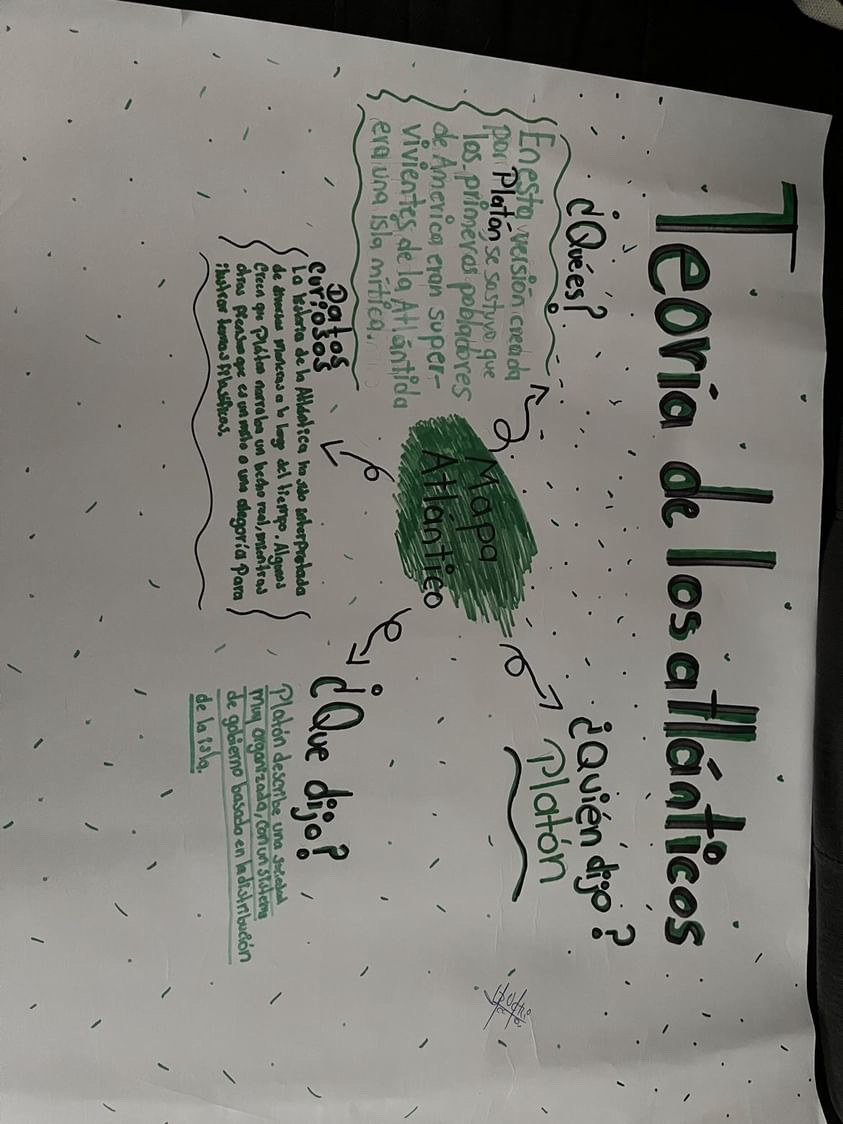 Teoría de los atlánticos
¿Qué es?
En esta versión creada
por Platón, se sostuvo que
los primeros pobladores
de America, eran super-
vivientes de la Atlántida
era una isla mítica.
¿Quién dijo?
Platón
Mapa
Atlántico
Datos
curiosos
La historia de la Atlántica ha sido interpretada
de diversas maneras a lo largo del tiempo. Algunos
Creen que Platón narraba un hecho real, mientras
otros piensan que es un mito o una alegoría para
ilustrar temas filosóficos.
¿Que dijo?
Platón describe una sociedad
muy organizada, con un sistema
de gobierno basado en la distribución
de la isla.